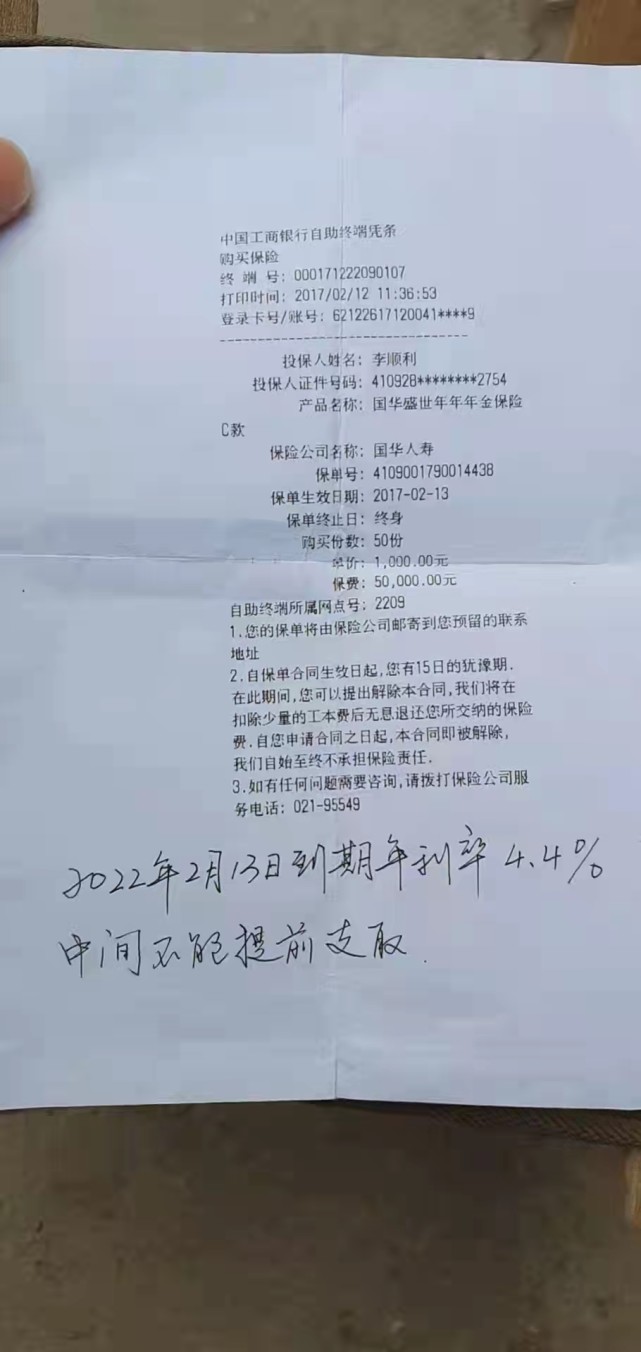 中国工商银行自助终端凭条
购买保险
终 端 号: 000171222090107
打印时间: 2017/02/12 11:36:53
登录卡号/账号: 62122617120041****9
投保人姓名: 李顺利
投保人证件号码: 410928********2754
产品名称: 国华盛世年年年金保险
C款
保险公司名称: 国华人寿
保单号: 4109001790014438
保单生效日期: 2017-02-13
保单终止日: 终身
购买份数: 50份
单价: 1,000.00元
保费: 50,000.00元
自助终端所属网点号: 2209
1.您的保单将由保险公司邮寄到您预留的联系
地址
2.自保单合同生效日起,您有15日的犹豫期.
在此期间,您可以提出解除本合同,我们将在
扣除少量的工本费后无息退还您所交纳的保险
费.自您申请合同之日起,本合同即被解除,
我们自始至终不承担保险责任.
3.如有任何问题需要咨询,请拨打保险公司服
务电话: 021-95549
2022年2月13日到期年利率4.4%
中间不能提前支取.